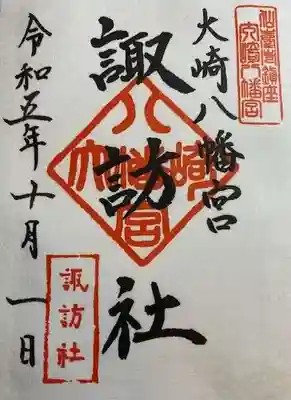 大崎八幡宮
大崎八幡宮
諏訪社
大崎八幡宮
令和五年十月一日
諏訪社